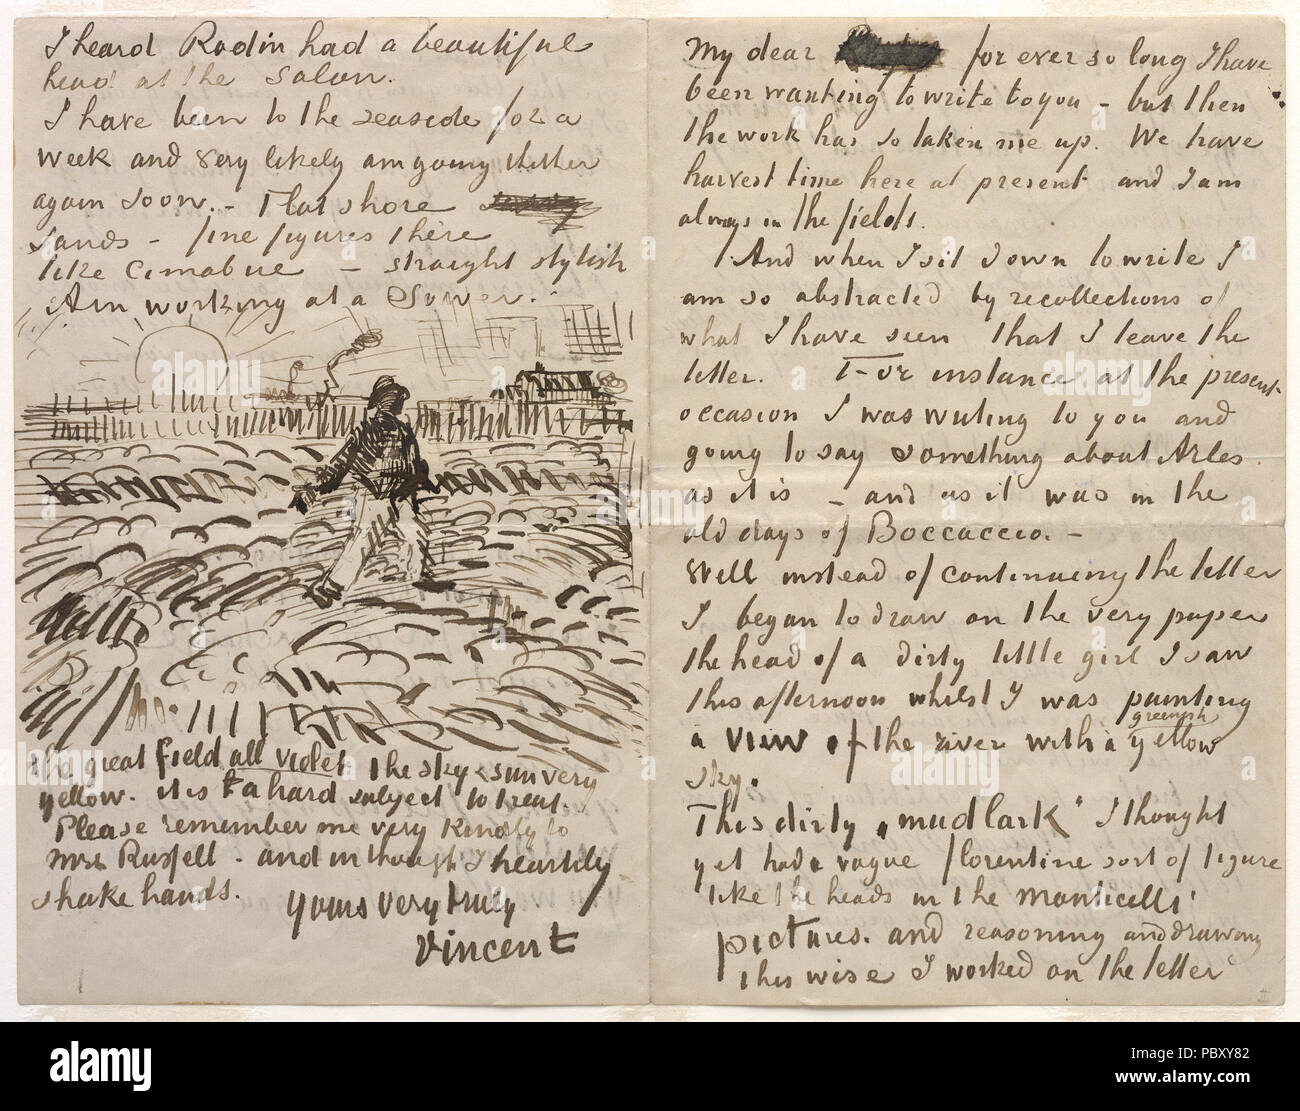 My dear for ever so long I have
been wanting to write to you – but then
the work has so taken me up. We have
harvest time here at present and I am
always in the fields.
And when I sit down to write I
am so abstracted by recollections of
what I have seen that I leave the
letter. For instance at the present
occasion I was writing to you and
going to say something about Arles
as it is – and as it was in the
old days of Boccaccio. –
Well instead of continuing the letter
I began to draw on the very paper
the head of a dirty little girl I saw
this afternoon whilst I was painting
a view of the river with a greenish yellow
sky.
This dirty „mudlark“ I thought
yet had a vague florentine sort of figure
like the heads in the Monticelli
pictures. and reasoning and drawing
this wise I worked on the letter
I heard Rodin had a beautiful
head at the salon.
I have been to the seaside for a
week and very likely am going thither
again soon. – Flat shore
sands – fine figures there
like Cimabue – straight stylish
Am working at a Sower.
the great field all violet the sky & sun very
yellow. it is a hard subject to treat.
Please remember me very kindly to
Mrs Russell – and in thought I heartily
shake hands.
Yours very truly
Vincent
alamy
Image ID: PBXY82
www.alamy.com